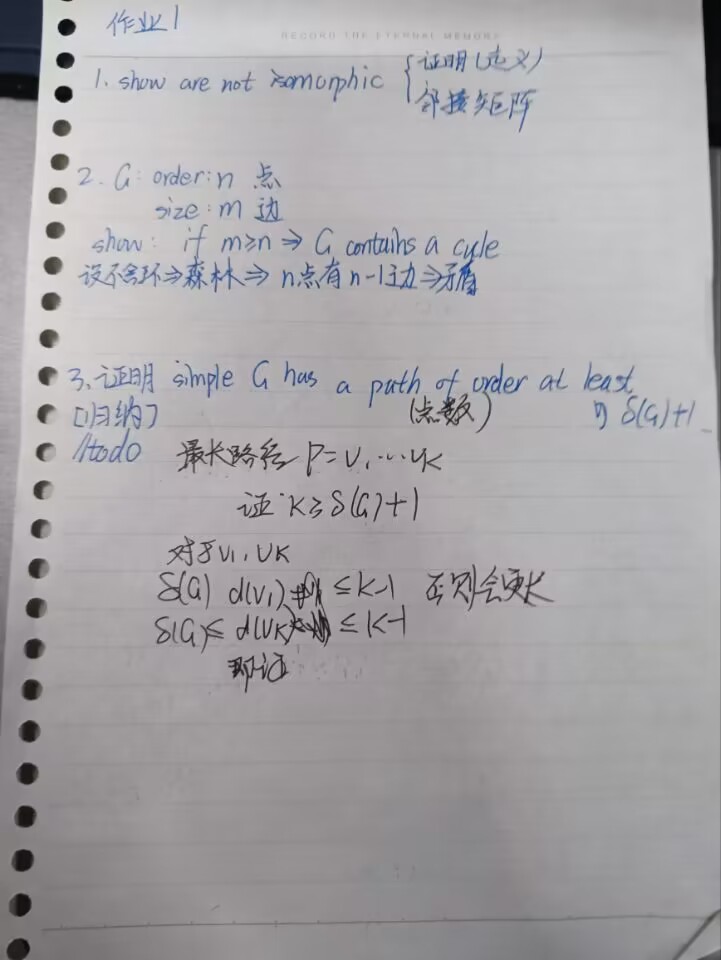 作业1
RECORD THE ETERNAL MEMORY
1. show are not isomorphic { 证明(定义)
邻接矩阵
2. G: order: n 点
size: m 边
show: if m≥n ⇒ G contains a cycle
设不含环⇒森林⇒ n点有n-1边⇒矛盾
3. 证明 simple G has a path of order at least
[归纳] (点数) δ(G)+1
//todo 最长路径 P=v1…vk
证: k≥δ(G)+1
对于v1, vk
δ(G) d(v1) ≤k-1 否则会更长
δ(G)≤ d(vk) ≤k-1
即证